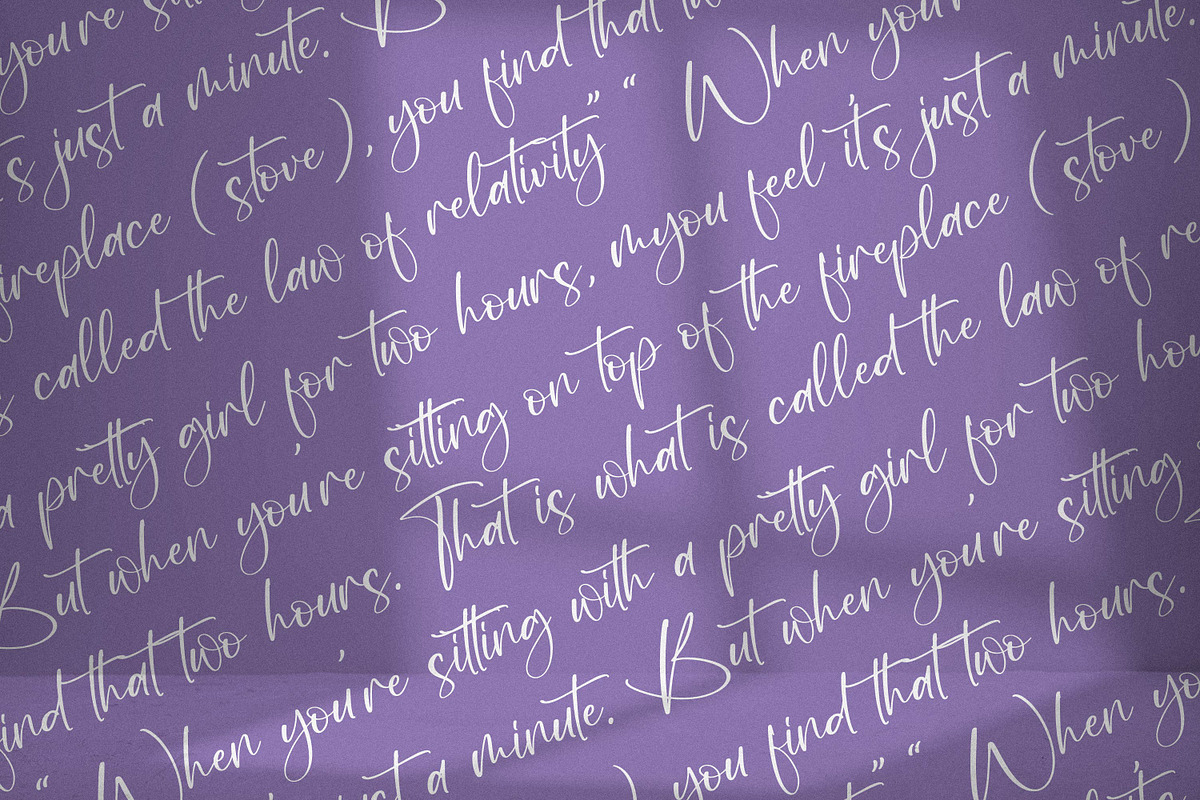 you're
's just a minute. B
fireplace (stove), you find that
called the law of relativity” “ When you'r
a pretty girl for two hours, myou feel it's just a minute.
But when you're sitting on top of the fireplace (stove)
find that two hours. That is what is called the law of re
“ When you're sitting with a pretty girl for two hou
just a minute. But when you're sitting
) you find that two hours.
” “ When yo